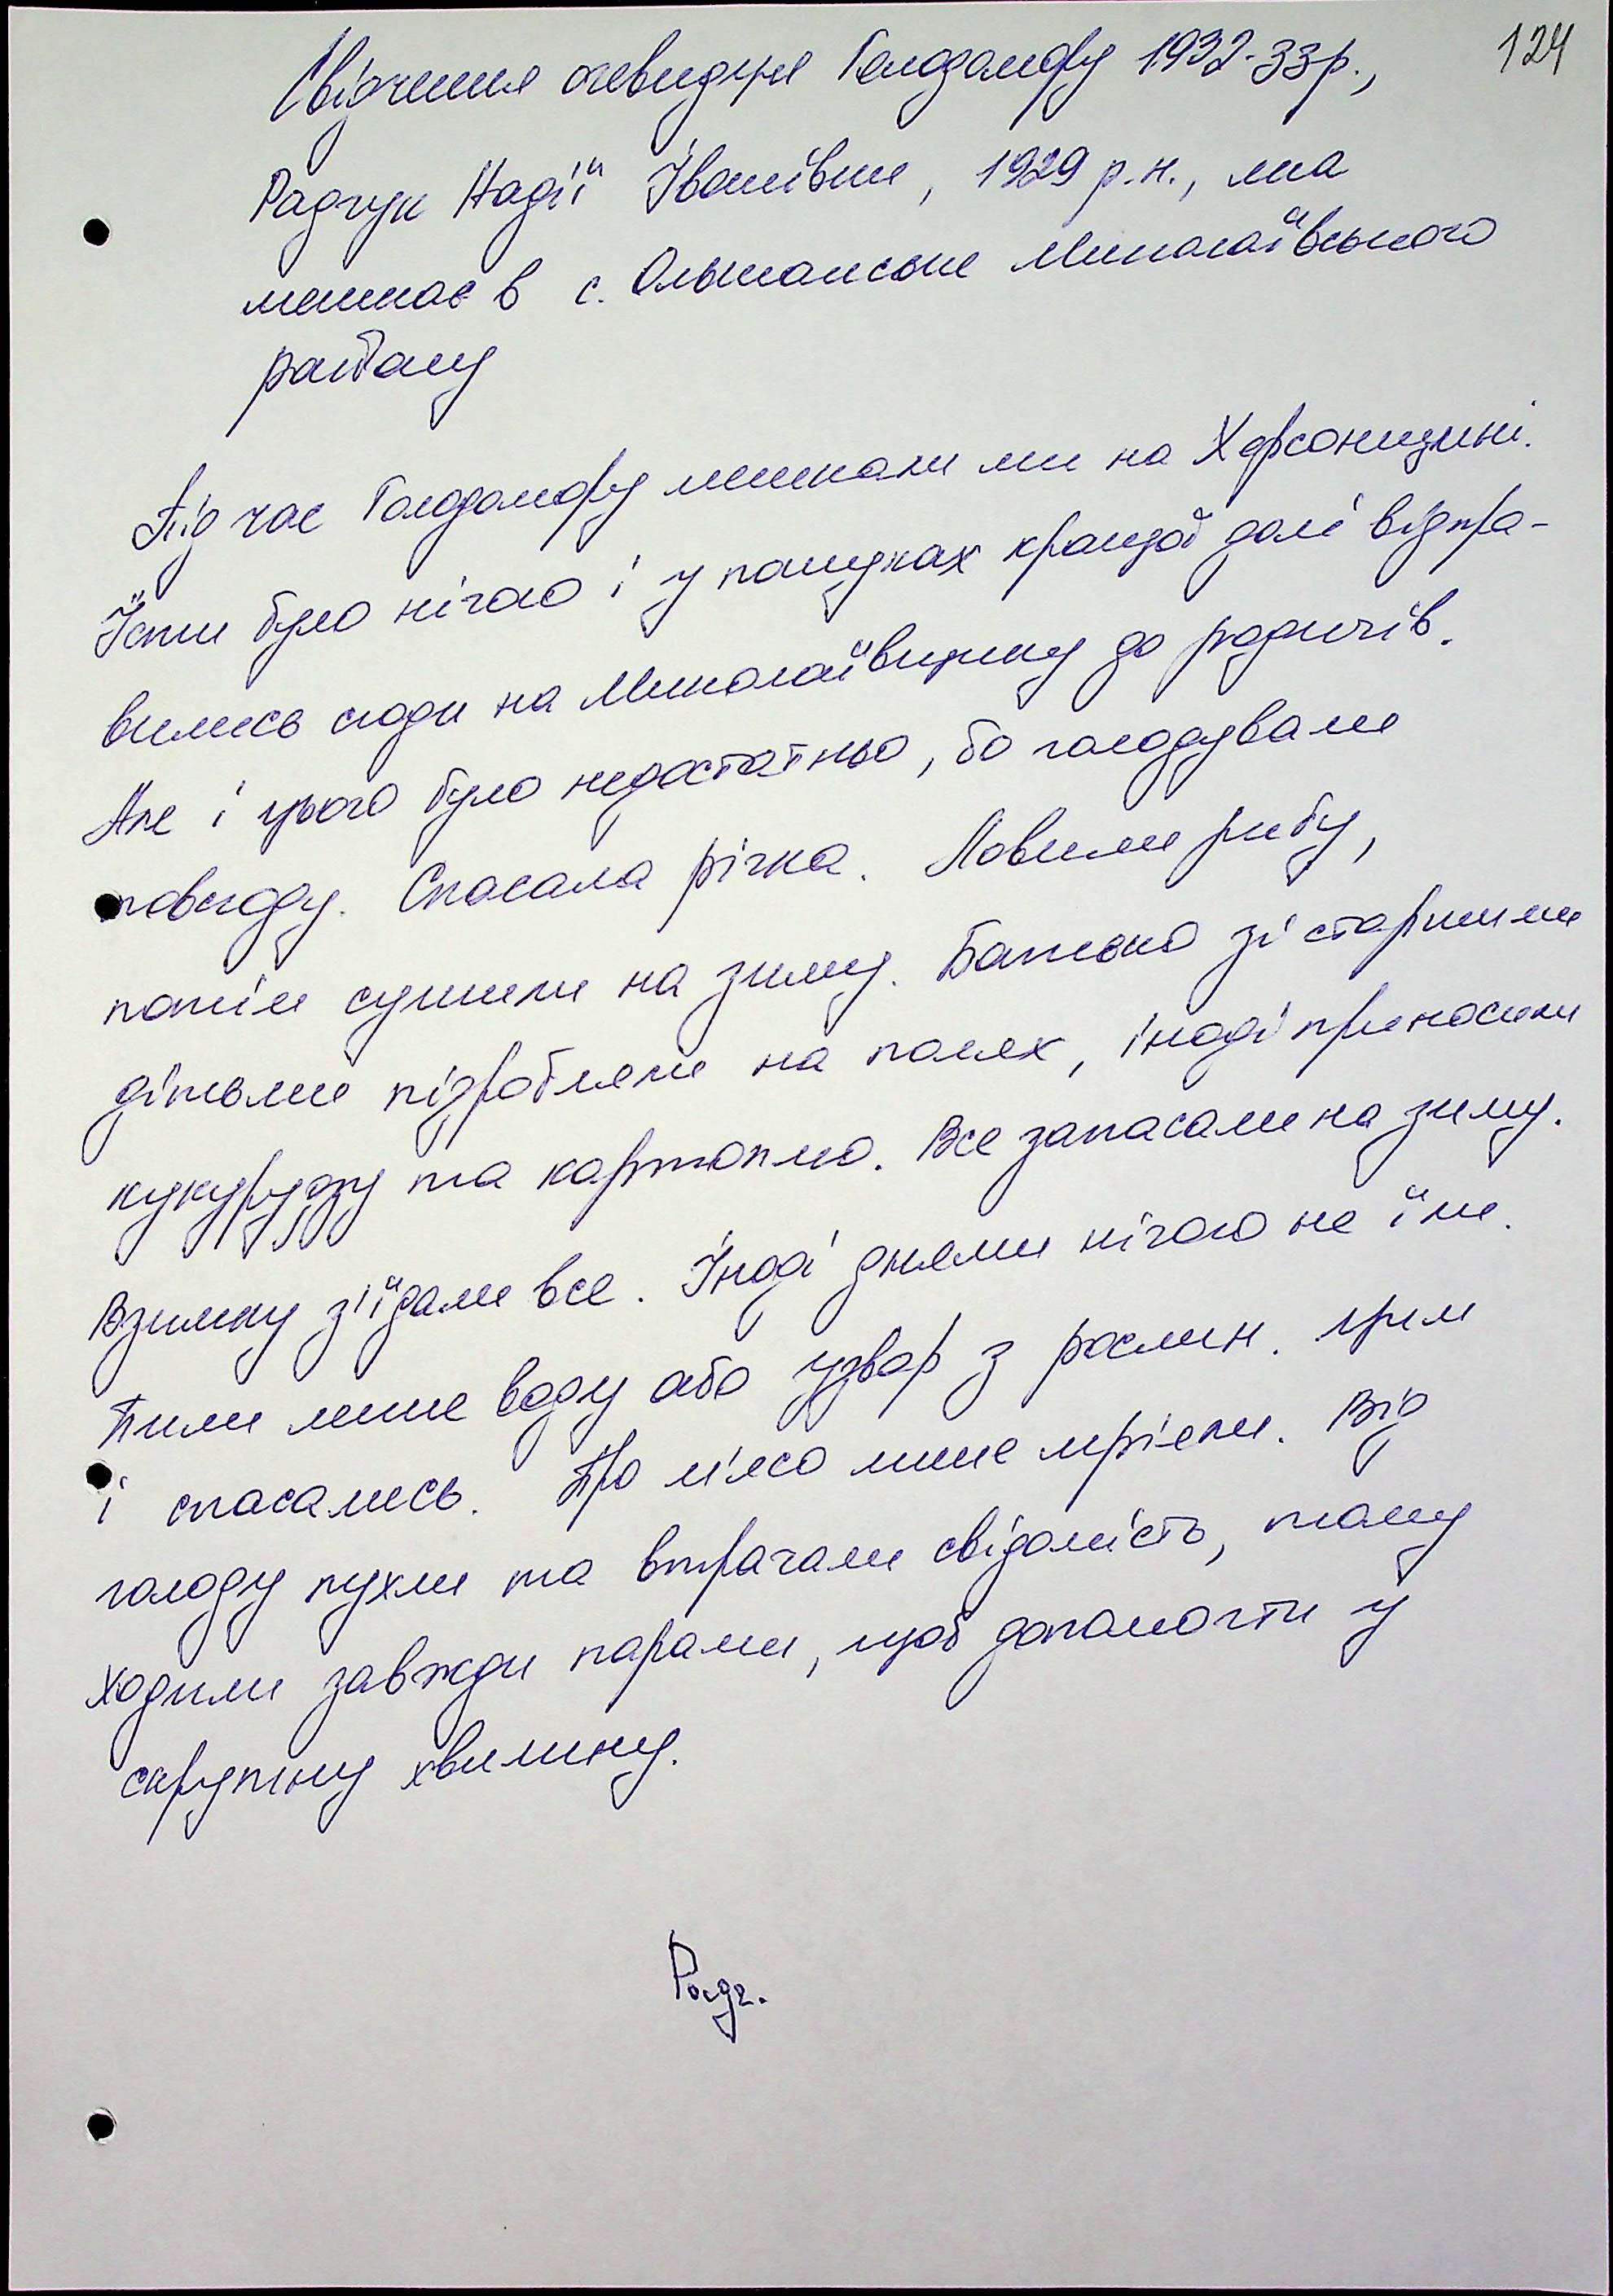 124
Свідчення очевидця Голодомору 1932-33р.,
Радчук Надії Іванівни, 1929 р.н., яка
мешкає в с. Ольшанське Миколаївського
району
Під час Голодомору мешкали ми на Херсонщині.
Їсти було нічого і у пошуках кращої долі відпра-
вились сюди на Миколаївщину до родичів.
Але і цього було недостатньо, бо голодували
повсюду. Спасала річка. Ловили рибу,
потім сушили на зиму. Батько зі старшими
дітьми підробляли на полях, іноді приносили
кукурудзу та картоплю. Все запасали на зиму.
Взимку з'їдали все. Іноді днями нічого не їли.
Пили лише воду або узвар з рослин. Цим
і спасались. Про м'ясо лише мріяли. Від
голоду пухли та втрачали свідомість, тому
ходили завжди парами, щоб допомогти у
скрутну хвилину.
Радч.